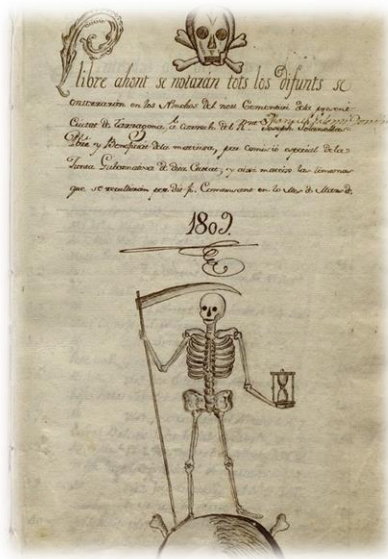 Llibre ahont se notarán tots los Difunts se
enterrarán en los Ninchos del nou Cementiri dels
Ciutat de Tarragona, á carrech del Rt. Joseph
Pbre y Beneficiat de la mateixa, per comisió especial de la
Junta Gubernativa de dita Ciutat; y aixi mateix las limosnas
que se recullirán per dit fi. Comensant en lo Mes de de
1809.